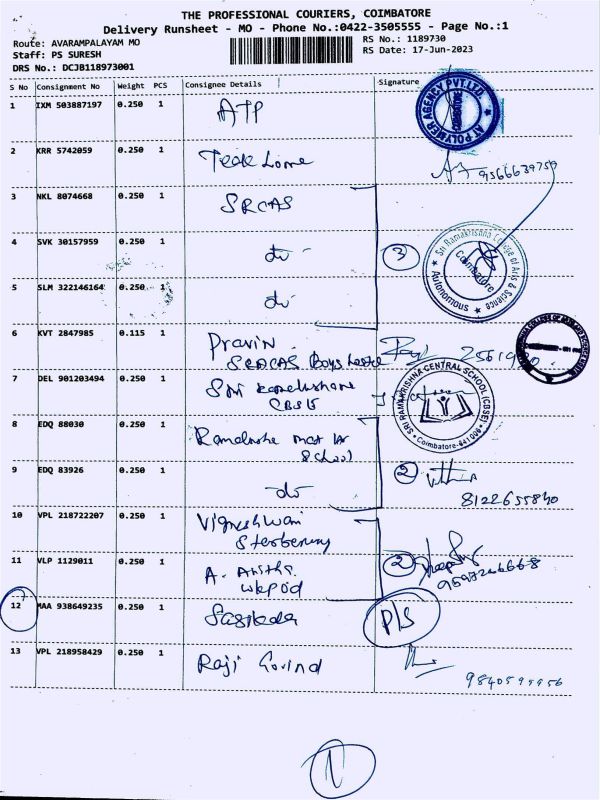 THE PROFESSIONAL COURIERS, COIMBATORE
Delivery Runsheet - MO - Phone No.:0422-3505555 - Page No.:1
Route: AVARAMPALAYAM MO
RS No.: 1189730
Staff: PS SURESH
RS Date: 17-Jun-2023
DRS No.: DCJB118973001
S No Consignment No Weight PCS Consignee Details Signature
1 IXM 503887197 0.250 1 ATP
AT POLYMER AGENCY PVT.LTD. COIMBATORE
2 KRR 5742059 0.250 1 Teak Lome
9566639759
3 NKL 8074668 0.250 1 SRCAS
4 SVK 30157959 0.250 1 do 3
Sri Ramakrishna College of Arts & Science
Coimbatore
Autonomous
5 SLM 322146164 0.250 1 do
6 KVT 2847985 0.115 1 Pravin
SRCAS Boys
7 DEL 901203494 0.250 1 Sri
CBSE
SRI RAMAKRISHNA CENTRAL SCHOOL (CBSE)
Coimbatore-641 006
8 EDQ 88030 0.250 1 mat
School
9 EDQ 83926 0.250 1 do 2
8122655840
10 VPL 218722207 0.250 1 Vigneshwari
11 VLP 1129011 0.250 1 A. 2
12 MAA 938649235 0.250 1 Sasikala P/S
13 VPL 218958429 0.250 1 Raji Govind